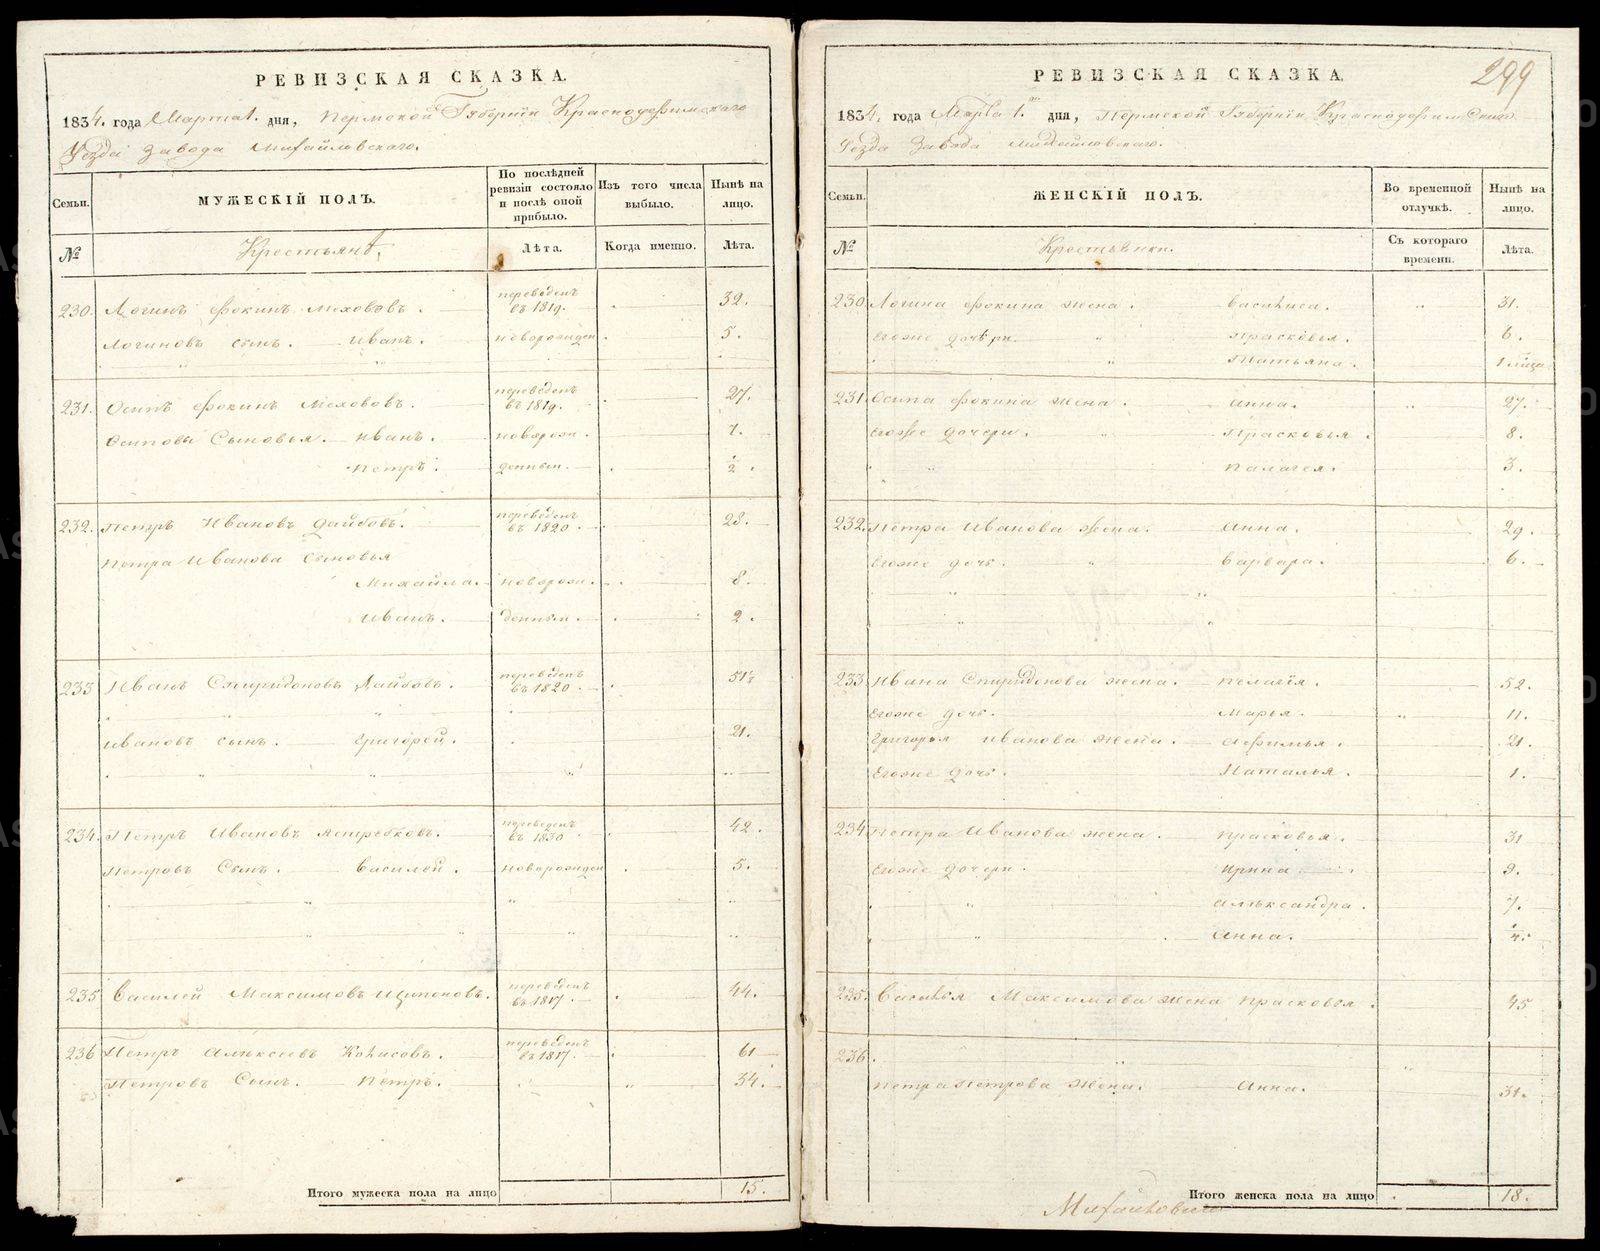 РЕВИЗСКАЯ СКАЗКА.
1834. года Марта 1. дня, Пермской Губернїи Красноуфимскаго
Уезда Завода Михайловскаго.
Семьи. МУЖЕСКІЙ ПОЛЪ. По послѣдней ревизіи состояло и послѣ оной прибыло. Изъ того числа выбыло. Нынѣ на лицо.
№ Крестьянъ, Лѣта. Когда именно. Лѣта.
230. Логинъ Фокинъ переведенъ въ 1819. 32.
Логиновъ сынъ. Иванъ. новорожден 5.
231. Осипъ Фокинъ переведенъ въ 1819. 27.
Осиповы Сыновья. Иванъ. новорож. 7.
Петръ. денныи. 1/2.
232. Петръ Ивановъ переведенъ въ 1820. 28.
Петра Иванова Сыновья
Михайла. новорож. 8.
Иванъ. денныи. 2.
233 Иванъ Спиридоновъ переведенъ въ 1820. 51
Ивановъ сынъ. Григорей. 21.
234. Петръ Ивановъ Ястребковъ. переведенъ въ 1830 42.
Петровъ Сынъ. Василей. новорожден 5.
235 Василей Максимовъ переведенъ въ 1817. 44.
236 Петръ Алексеевъ переведенъ въ 1817. 61
Петровъ Сынъ. Петръ. 34.
Итого мужеска пола на лицо 15.
299
РЕВИЗСКАЯ СКАЗКА.
1834. года Марта 1. дня, Пермской Губернїи Красноуфимскаго
Уезда Завода Михайловскаго.
Семьи. ЖЕНСКІЙ ПОЛЪ. Во временной отлучкѣ. Нынѣ на лицо.
№ Крестьянки. Съ котораго времени. Лѣта.
230 Логина Фокина жена. Василиса. 31.
Егоже дочери. Прасковья. 6.
Татьяна. 1
231. Осипа Фокина жена. Анна. 27.
Егоже дочери. Прасковья. 8.
Палагея. 3.
232. Петра Иванова жена. Анна. 29.
Егоже дочь. Варвара. 6.
233. Ивана Спиридонова жена. Пелагїя. 52.
Егоже дочь. Марья. 11.
Григорья Иванова жена. Афимья. 21.
Егоже дочь. Наталья. 1.
234 Петра Иванова жена. Прасковья. 31
Егоже дочери. Ирина 9.
Александра. 7.
Анна.
235. Василья Максимова жена Прасковья. 45
236.
Петра Петрова жена. Анна. 31.
Итого женска пола на лицо 18.